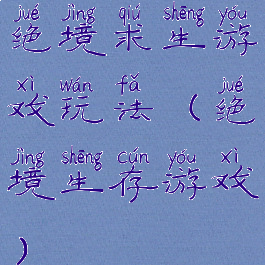 jué jìng qiú shēng yóu
绝境求生游
xì wán fǎ jué
戏玩法（绝
jìng shēng cún yóu xì
境生存游戏
）